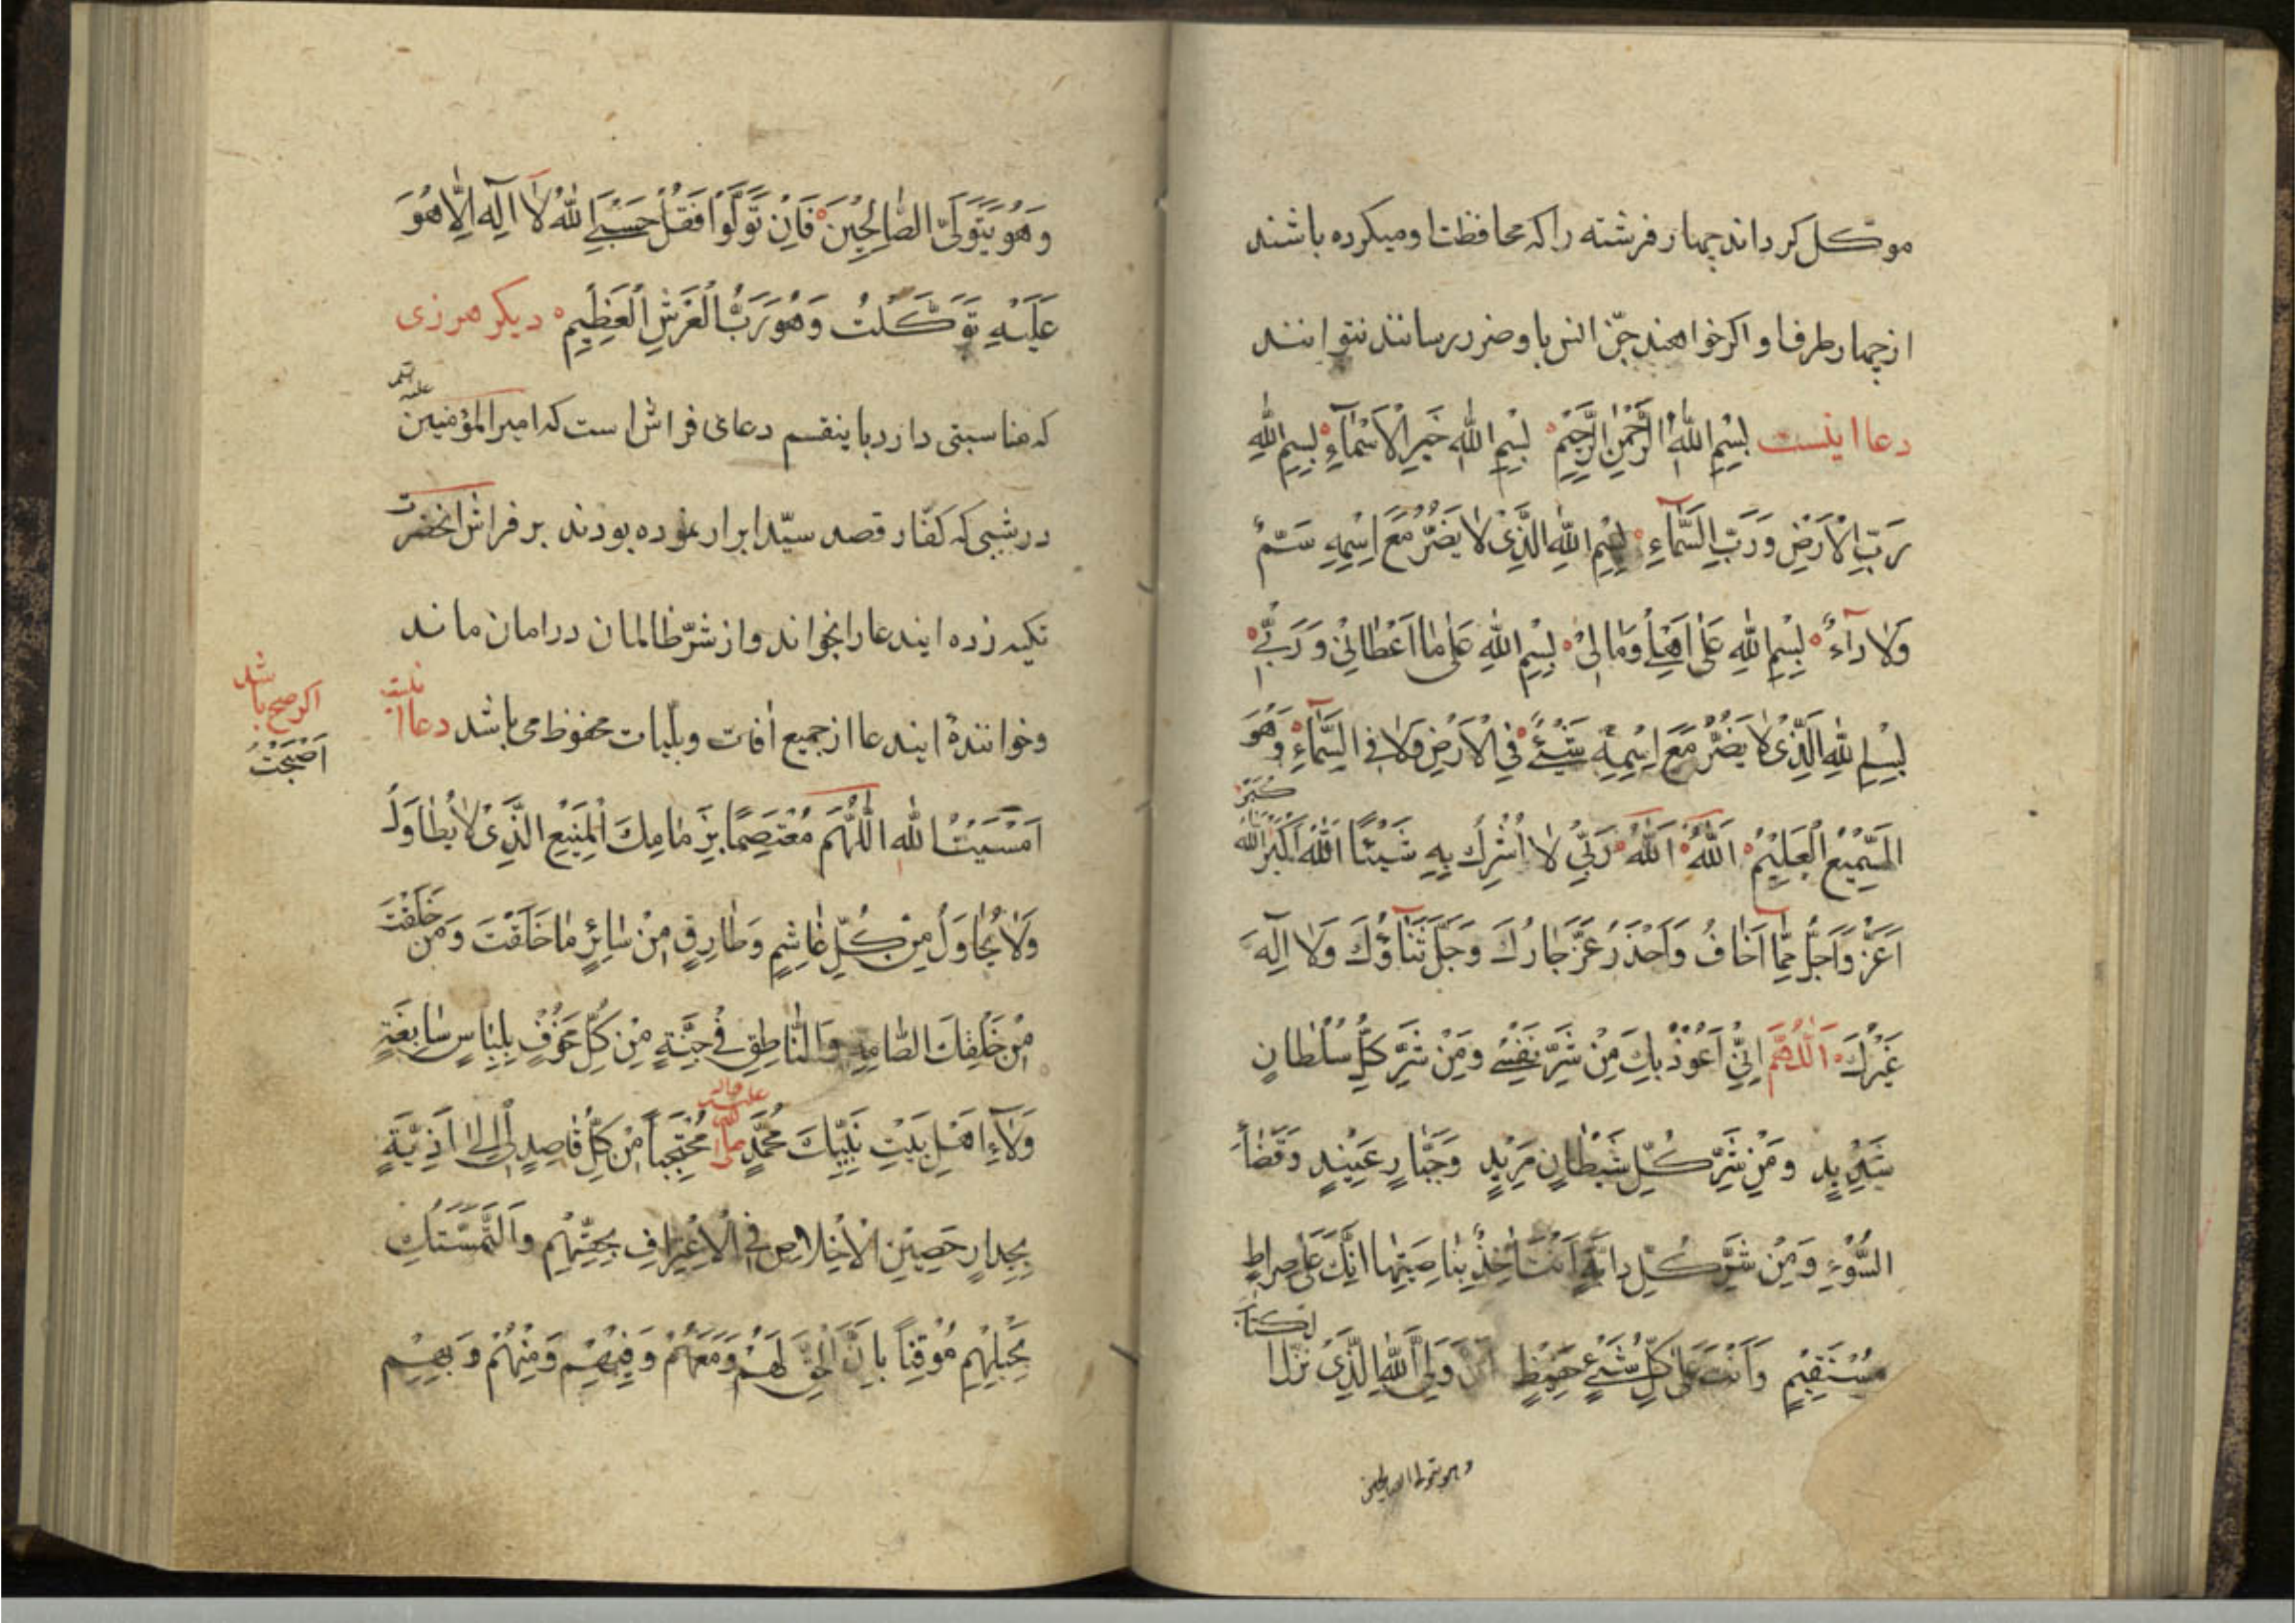 موكّل کرداند چهار فرشته را که محافظت او میکرده باشند
از چهار طرف او اکر خواهند جنّ انس با و ضرر رسانند نتوانند
دعا اینست بِسْمِ اللهِ الرَّحْمٰنِ الرَّحِيْمِ بِسْمِ اللهِ خَيْرِ الْاَسْمَآءِ بِسِمِ اللهِ
رَبِّ الْاَرْضِ وَرَبِّ السَّمَآءِ بِسْمِ اللهِ الَّذِىْ لَا يَضُرُّ مَعَ اِسْمِهِ سَمٌّ
وَلَا دَآءٌ بِسْمِ اللهِ عَلٰى اَهْلِىْ وَمَالِىْ بِسْمِ اللهِ عَلٰى مَا اَعْطَانِىْ وَرَبِّىْ
بِسْمِ اللهِ الَّذِىْ لَا يَضُرُّ مَعَ اِسْمِهٖ شَيْئٌ فِى الْاَرْضِ وَلَا فِى السَّمَآءِ وَهُوَ
السَّمِيْعُ الْعَلِيْمُ اَللهُ اَللهُ رَبِّىْ لَا اُشْرِكُ بِهٖ شَيْئًا اَللهُ اَكْبَرُ اَللهُ اَكْبَرُ
اَعَزُّ وَاَجَلُّ مِمَّا اَخَافُ وَاَحْذَرُ عَزَّ جَارُكَ وَجَلَّ ثَنَاؤُكَ وَلَا اِلٰهَ
غَيْرُكَ اَللّٰهُمَّ اِنِّىْ اَعُوْذُ بِكَ مِنْ شَرِّ نَفْسِىْ وَمِنْ شَرِّ كُلِّ سُلْطَانٍ
شَدِيْدٍ وَمِنْ شَرِّ كُلِّ شَيْطَانٍ مَرِيْدٍ وَجَبَّارٍ عَنِيْدٍ وَقَضَآءِ
السُّوْءِ وَمِنْ شَرِّ كُلِّ دَابَّةٍ اَنْتَ اٰخِذٌ بِنَاصِيَتِهَا اِنَّكَ عَلٰى صِرَاطٍ
مُسْتَقِيْمٍ وَاَنْتَ عَلٰى كُلِّ شَىْءٍ حَفِيْظٌ اِنَّ وَلِىَّ اللهُ الَّذِىْ نَزَّلَ الْكِتَابَ
وهو يتولى الصالحين
وَهُوَ يَتَوَلَّى الصَّالِحِيْنَ فَاِنْ تَوَلَّوْا فَقُلْ حَسْبِىَ اللهُ لَا اِلٰهَ اِلَّا هُوَ
عَلَيْهِ تَوَكَّلْتُ وَهُوَ رَبُّ الْعَرْشِ الْعَظِيْمِ دیکر هرزی
که مناسبتی دارد باینقسم دعای فراش است که امیر المؤمنین علیه
در شبی که کفّار قصد سیّد ابرار نموده بودند بر فراش انحضرت
تکیه زده ایندعا را بخواند و از شرّ ظالمان در امان ماند
و خوانندهٔ ایندعا از جمیع افات و بلیات محفوظ می باشد دعا اینست
اکر صبح باشد
اَصْبَحْتُ
اَمْسَيْتُ اللّٰهُمَّ مُعْتَصِمًا بِذِمَامِكَ الْمَنِيْعِ الَّذِىْ لَا يُطَاوَلُ
وَلَا يُحَاوَلُ مِنْ كُلِّ غَاشِمٍ وَطَارِقٍ مِنْ سَائِرِ مَا خَلَقْتَ وَمَنْ خَلَقْتَ
مِنْ خَلْقِكَ الصَّامِتِ وَالنَّاطِقِ فِىْ جُنَّةٍ مِنْ كُلِّ مَخُوْفٍ بِلِبَاسٍ سَابِغَةٍ
وَلَآءِ اَهْلِ بَيْتِ نَبِيِّكَ مُحَمَّدٍ صلى الله عليه واله مُحْتَجِبًا مِنْ كُلِّ قَاصِدٍ لِىْ اِلٰى اَذِيَّةٍ
بِجِدَارٍ حَصِيْنِ الْاِخْلَاصِ فِى الْاِعْتِرَافِ بِحَقِّهِمْ وَالتَّمَسُّكِ
بِحَبْلِهِمْ مُوْقِنًا بِاَنَّ الْحَقَّ لَهُمْ وَمَعَهُمْ وَفِيْهِمْ وَمِنْهُمْ وَبِهِمْ